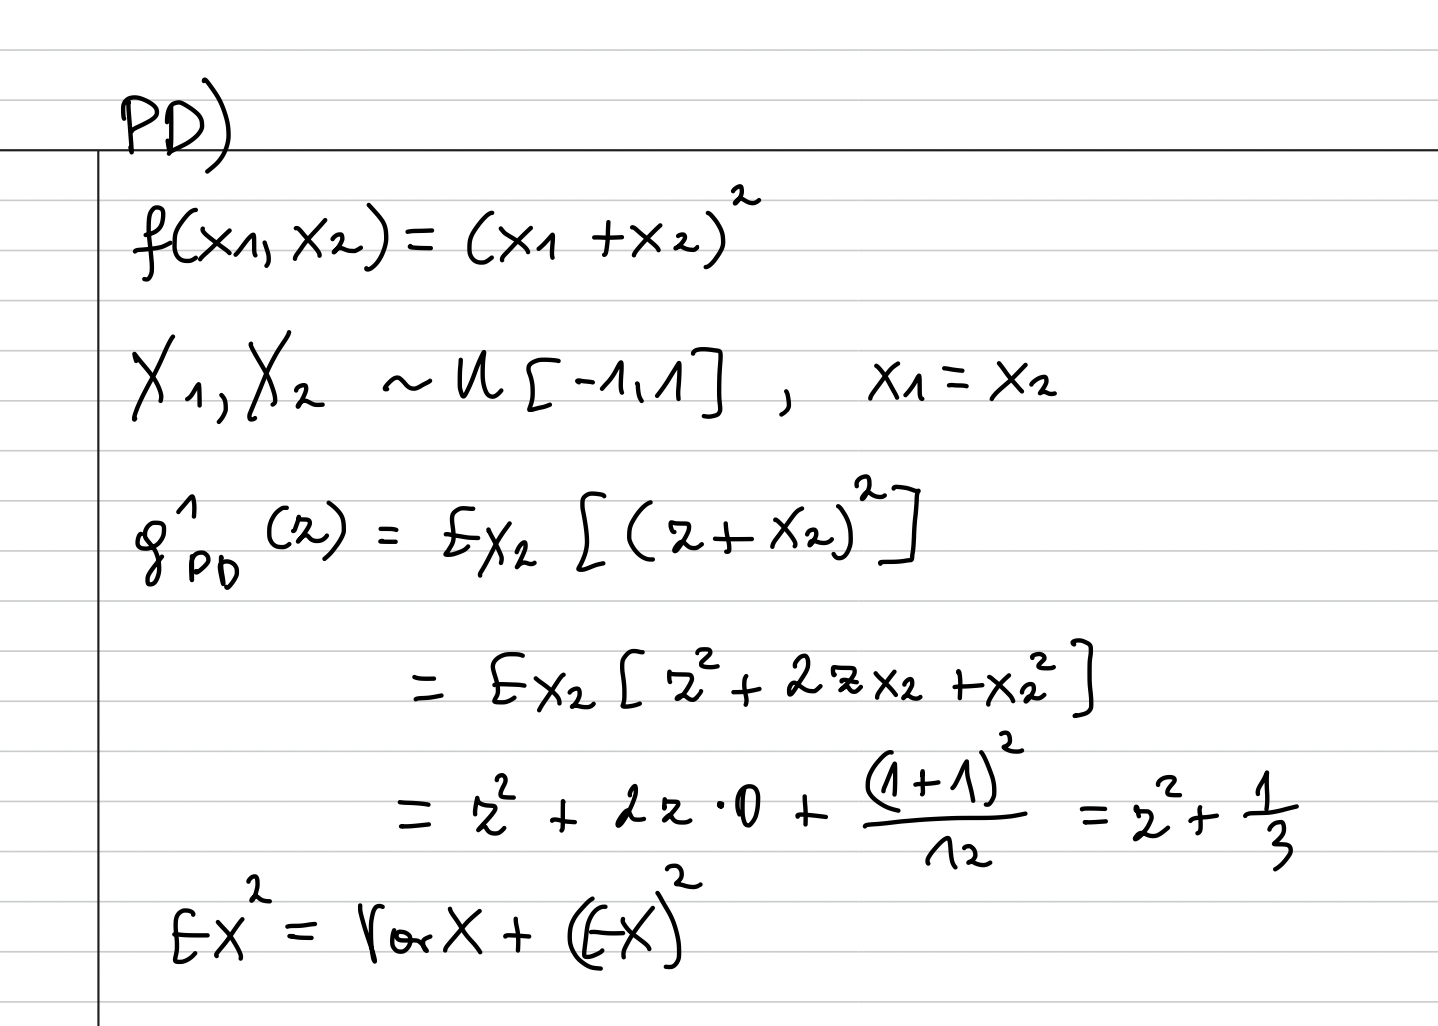 PD)
f(x1, x2) = (x1 + x2)²
X₁, X₂ ~ U[-1,1] , x1 = x2
g¹_PD (z) = E_X₂ [(z + x₂)²]
= E_X₂ [z² + 2zx₂ + x₂²]
= z² + 2z · 0 + (1+1)²/12 = z² + 1/3
EX² = Var X + (EX)²